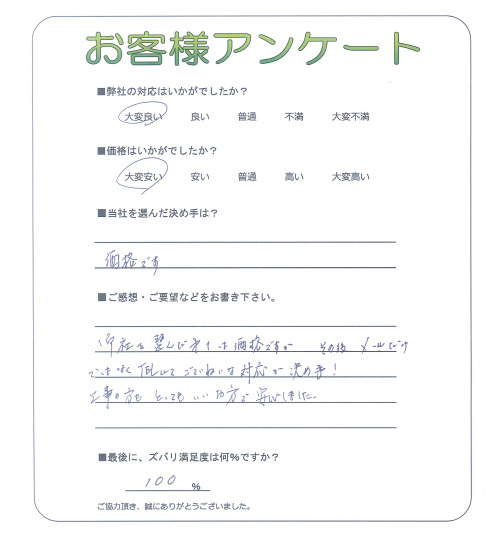 お客様アンケート
■弊社の対応はいかがでしたか？
大変良い 良い 普通 不満 大変不満
■価格はいかがでしたか？
大変安い 安い 普通 高い 大変高い
■当社を選んだ決め手は？
価格です
■ご感想・ご要望などをお書き下さい。
社を選んだ は価格ですが その後 メールだけ
ではなく TELにて ごていねいな対応が決め手！
工事の方も とってもいい方で安心しました。
■最後に、ズバリ満足度は何%ですか？
100 %
ご協力頂き、誠にありがとうございました。